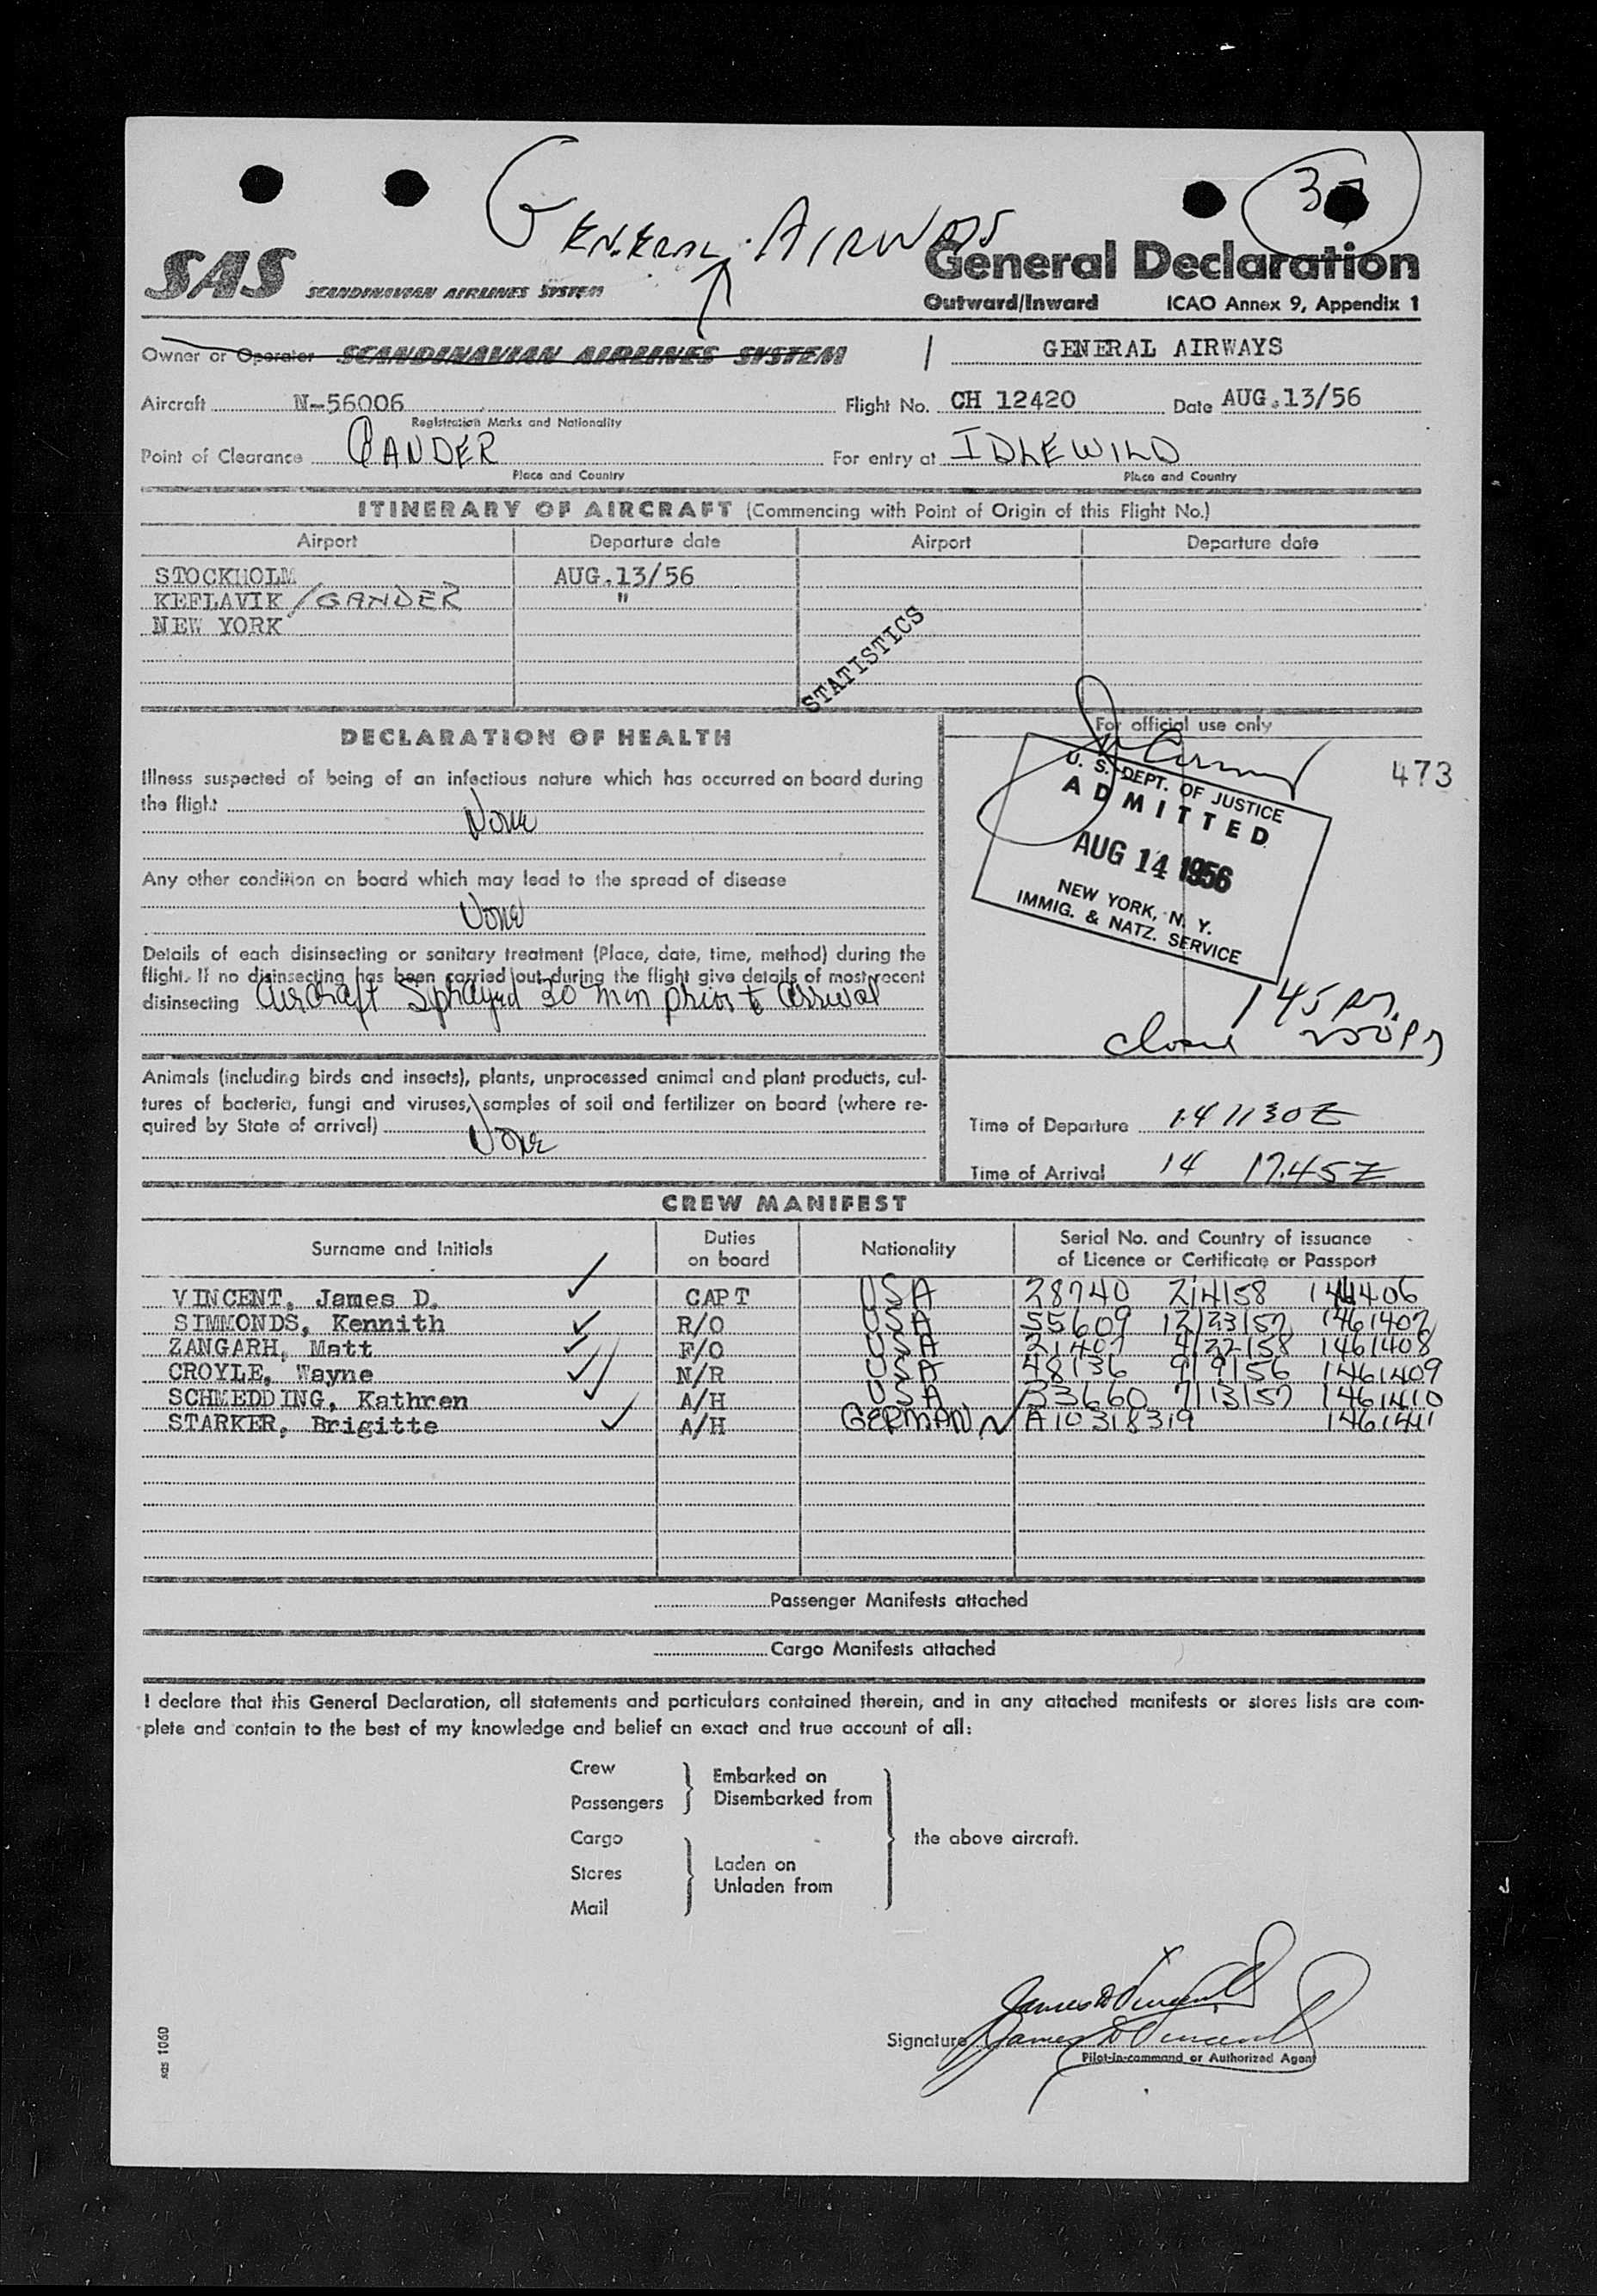 GENERAL AIRWAYS
SAS SCANDINAVIAN AIRLINES SYSTEM
General Declaration
Outward/Inward ICAO Annex 9, Appendix 1
Owner or Operator SCANDINAVIAN AIRLINES SYSTEM / GENERAL AIRWAYS
Aircraft N-56006 Flight No. CH 12420 Date AUG.13/56
Registration Marks and Nationality
Point of Clearance GANDER For entry at IDLEWILD
Place and Country Place and Country
ITINERARY OF AIRCRAFT (Commencing with Point of Origin of this Flight No.)
Airport Departure date Airport Departure date
STOCKHOLM AUG.13/56
KEFLAVIK /GANDER "
NEW YORK
STATISTICS
DECLARATION OF HEALTH
Illness suspected of being of an infectious nature which has occurred on board during
the flight
None
Any other condition on board which may lead to the spread of disease
None
Details of each disinsecting or sanitary treatment (Place, date, time, method) during the
flight. If no disinsecting has been carried out during the flight give details of most recent
disinsecting Aircraft Sprayed 30 min prior to arrival
Animals (including birds and insects), plants, unprocessed animal and plant products, cul-
tures of bacteria, fungi and viruses, samples of soil and fertilizer on board (where re-
quired by State of arrival)
None
For official use only
473
U. S. DEPT. OF JUSTICE
ADMITTED
AUG 14 1956
NEW YORK, N. Y.
IMMIG. & NATZ. SERVICE
1 45 pm.
250 Pm
Time of Departure 14 1130Z
Time of Arrival 14 17.45Z
CREW MANIFEST
Surname and Initials Duties on board Nationality Serial No. and Country of issuance of Licence or Certificate or Passport
VINCENT, James D. CAPT USA 28740 2/4/58 144406
SIMMONDS, Kennith R/O USA 55609 12/23/57 1461407
ZANGARH, Matt F/O USA 21407 4/22/58 1461408
CROYLE, Wayne N/R USA 48136 9/9/56 1461409
SCHMEDDING, Kathren A/H USA 33660 7/13/57 1461410
STARKER, Brigitte A/H GERMAN A10318319 1461411
Passenger Manifests attached
Cargo Manifests attached
I declare that this General Declaration, all statements and particulars contained therein, and in any attached manifests or stores lists are com-
plete and contain to the best of my knowledge and belief an exact and true account of all:
Crew
Passengers
Embarked on
Disembarked from
Cargo
Stores
Mail
Laden on
Unladen from
the above aircraft.
James D Vincent
Signature James D Vincent
Pilot-in-command or Authorized Agent
sas 1060